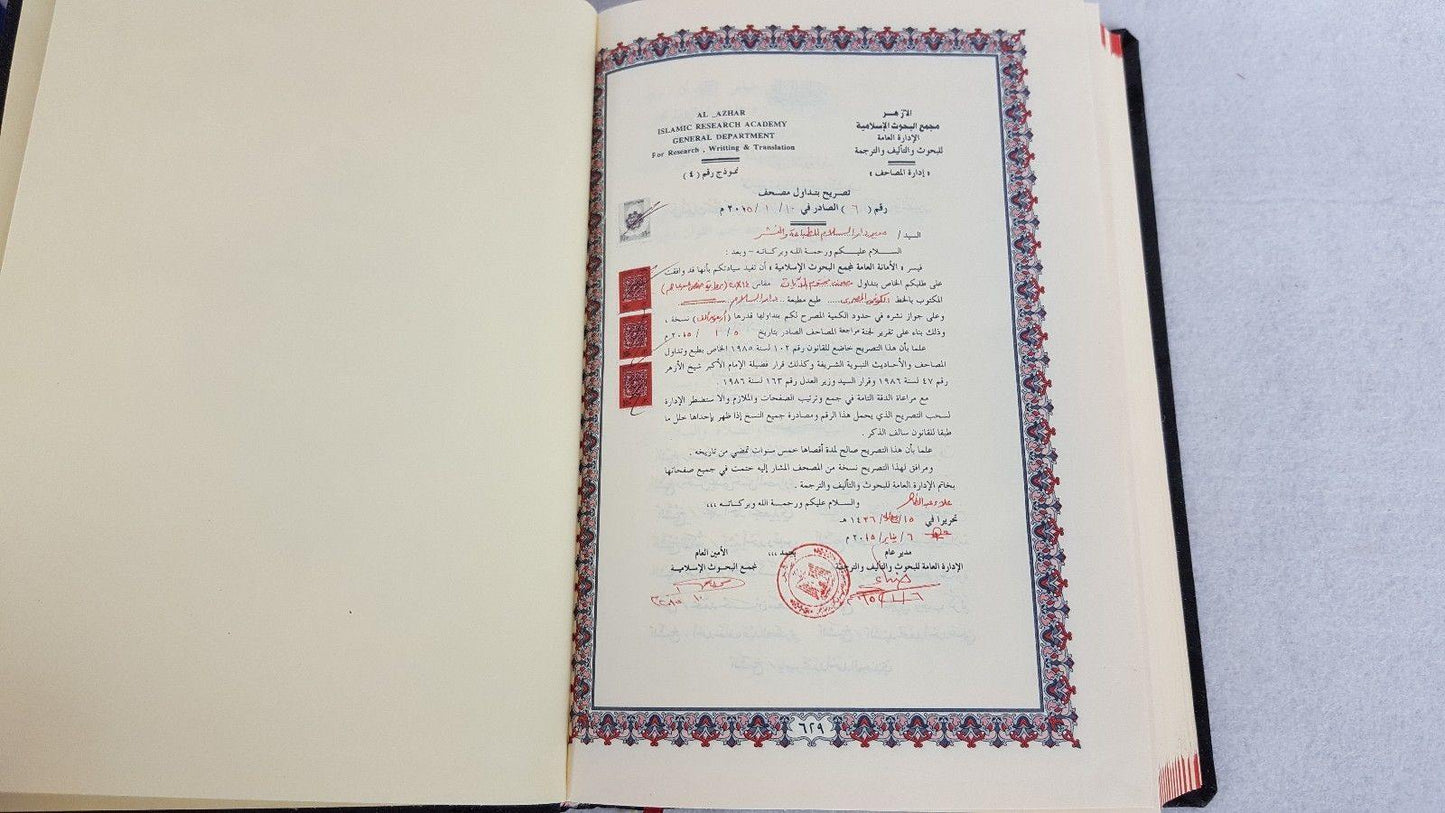 AL _AZHAR
ISLAMIC RESEARCH ACADEMY
GENERAL DEPARTMENT
For Research , Writting & Translation
نموذج رقم ( ٤ )
الأزهر
مجمع البحوث الإسلامية
الإدارة العامة
للبحوث والتأليف والترجمة
« إدارة المصاحف »
تصريح بتداول مصحف
رقم ( ٦ ) الصادر في ١٠ / ١ / ٢٠١٥ م
السيد / مدير دار السلام للطباعة والنشر
السلام عليكم ورحمة الله وبركاته – وبعد :
فيسر « الأمانة العامة لمجمع البحوث الإسلامية » أن تفيد سيادتكم بأنها قد وافقت
على طلبكم الخاص بتداول مصحف مقاس
المكتوب بالخط ..... طبع مطبعة .. دار السلام
وعلى جواز نشره في حدود الكمية المصرح لكم بتداولها قدرها ( ) نسخة ،
وذلك بناء على تقرير لجنة مراجعة المصاحف الصادر بتاريخ ٥ / ١ / ٢٠١٥ م
علما بأن هذا التصريح خاضع للقانون رقم ١٠٢ لسنة ١٩٨٥ الخاص بطبع وتداول
المصاحف والأحاديث النبوية الشريفة وكذلك قرار فضيلة الإمام الأكبر شيخ الأزهر
رقم ٤٧ لسنة ١٩٨٦ وقرار السيد وزير العدل رقم ١٦٣ لسنة ١٩٨٦ .
مع مراعاة الدقة التامة في جمع وترتيب الصفحات والملازم والا ستضطر الإدارة
لسحب التصريح الذي يحمل هذا الرقم ومصادرة جميع النسخ إذا ظهر بإحداها خلل ما
طبقا للقانون سالف الذكر .
علما بأن هذا التصريح صالح لمدة أقصاها خمس سنوات تمضي من تاريخه .
ومرافق لهذا التصريح نسخة من المصحف المشار إليه ختمت في جميع صفحاتها
بخاتم الإدارة العامة للبحوث والتأليف والترجمة .
والسلام عليكم ورحمة الله وبركاته ،،،
علاء عبد الظاهر
تحريرا في ١٥ / / ١٤٣٦ هـ
٦ / يناير / ٢٠١٥ م
مدير عام
الإدارة العامة للبحوث والتأليف والترجمة
يعتمد ،،،
الأمين العام
لمجمع البحوث الإسلامية
٦٢٩